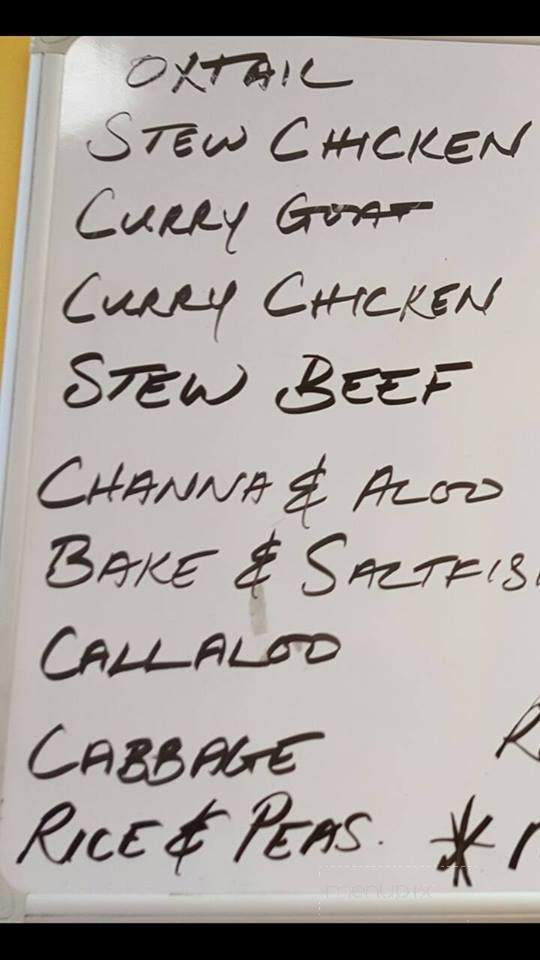 OXTAIL
STEW CHICKEN
CURRY GOAT
CURRY CHICKEN
STEW BEEF
CHANNA & ALOO
BAKE & SALTFIS
CALLALOO
CABBAGE
R
RICE & PEAS. *
menupix